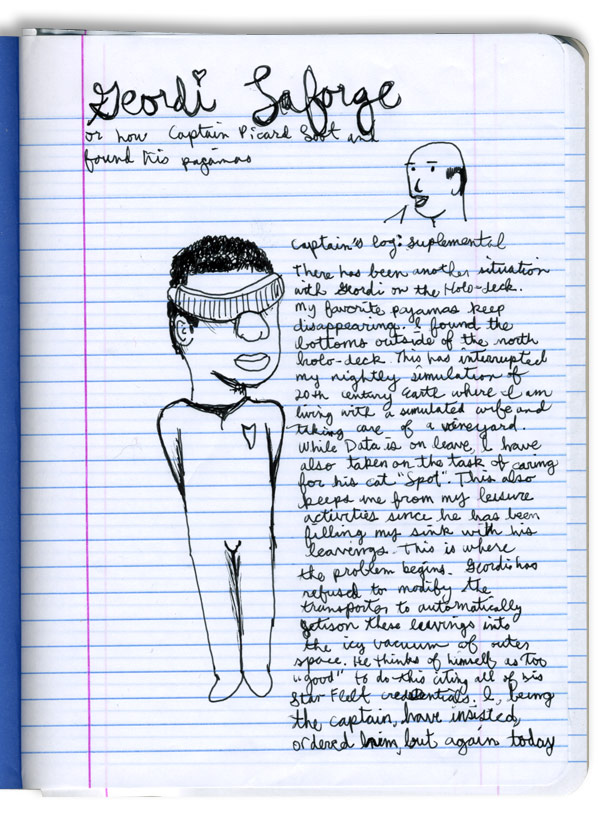 Geordi Laforge
or how Captain Picard Lost and
found his pajamas
Captain's log: Suplemental
There has been another situation
with Geordi on the Holo-deck.
My favorite pajamas keep
disappearing. I found the
bottoms outside of the north
holo-deck. This has interrupted
my nightly simulation of
20th century Earth where I am
living with a simulated wife and
taking care of a vineyard.
While Data is on leave, I have
also taken on the task of caring
for his cat "Spot". This also
keeps me from my leisure
activities since he has been
filling my sink with his
leavings. This is where
the problem begins. Geordi has
refused to modify the
transporter to automatically
jetison these leavings into
the icy vacuum of outer
space. He thinks of himself as too
"good" to do this citing all of his
Star Fleet credentials. I, being
the captain, have insisted,
ordered him, but again today